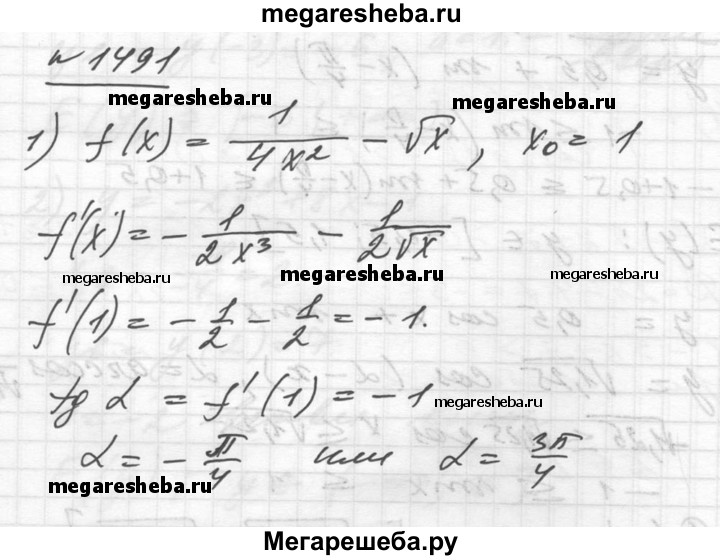 megaresheba.ru
№ 1491
megaresheba.ru megaresheba.ru
1) f(x) = 1/(4x²) − √x, x₀ = 1
f'(x) = − 1/(2x³) − 1/(2√x)
megaresheba.ru megaresheba.ru megaresheba.ru
f'(1) = − 1/2 − 1/2 = − 1.
tg α = f'(1) = − 1
megaresheba.ru
α = − π/4 или α = 3π/4
megaresheba.ru
Мегарешеба.ру